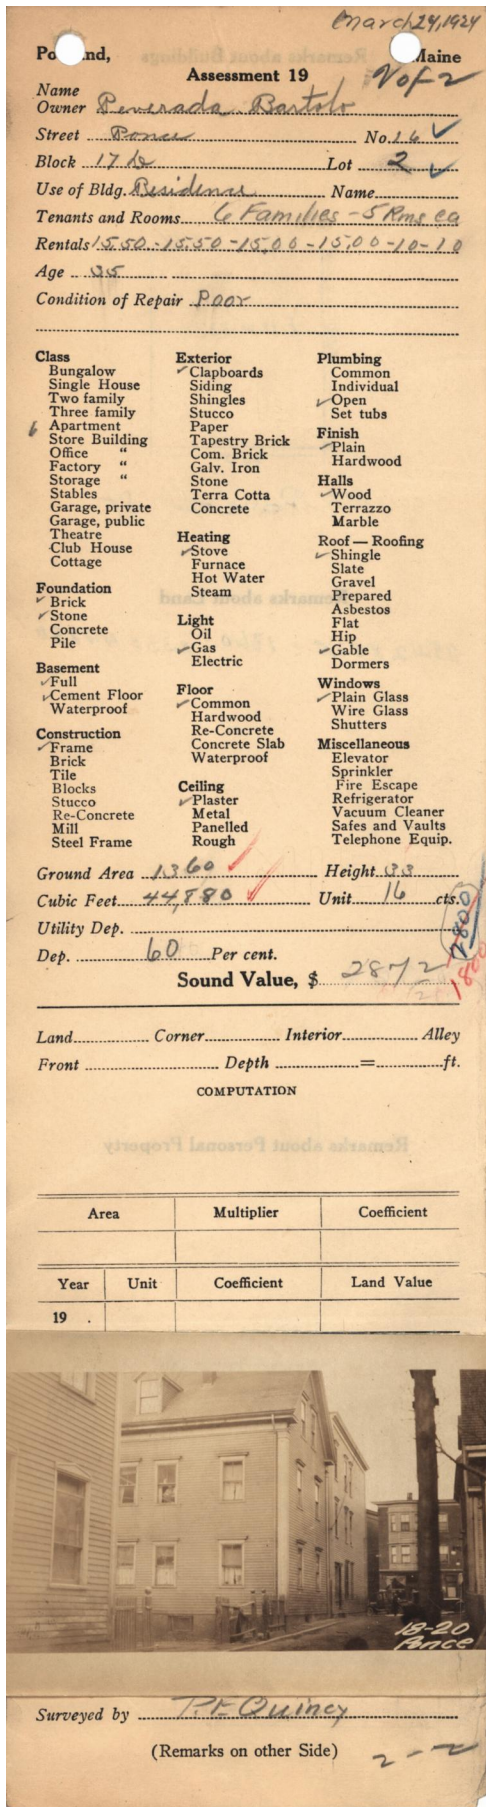 March 24, 1924
Po nd, Maine
Assessment 19
2 of 2
Name
Owner Peverada Bartolo
Street Ponce No. 16 ✓
Block 17 D Lot 2 ✓
Use of Bldg. Residence Name
Tenants and Rooms 6 Families - 5 Rms ea
Rentals 15.50 - 15.50 - 15.00 - 15.00 - 10 - 10
Age 35
Condition of Repair Poor
Class
Bungalow
Single House
Two family
Three family
6 Apartment
Store Building
Office "
Factory "
Storage "
Stables
Garage, private
Garage, public
Theatre
Club House
Cottage
Foundation
✓ Brick
✓ Stone
Concrete
Pile
Basement
✓ Full
✓ Cement Floor
Waterproof
Construction
✓ Frame
Brick
Tile
Blocks
Stucco
Re-Concrete
Mill
Steel Frame
Exterior
✓ Clapboards
Siding
Shingles
Stucco
Paper
Tapestry Brick
Com. Brick
Galv. Iron
Stone
Terra Cotta
Concrete
Heating
✓ Stove
Furnace
Hot Water
Steam
Light
Oil
✓ Gas
Electric
Floor
✓ Common
Hardwood
Re-Concrete
Concrete Slab
Waterproof
Ceiling
✓ Plaster
Metal
Panelled
Rough
Plumbing
Common
Individual
✓ Open
Set tubs
Finish
✓ Plain
Hardwood
Halls
✓ Wood
Terrazzo
Marble
Roof — Roofing
✓ Shingle
Slate
Gravel
Prepared
Asbestos
Flat
Hip
✓ Gable
Dormers
Windows
✓ Plain Glass
Wire Glass
Shutters
Miscellaneous
Elevator
Sprinkler
Fire Escape
Refrigerator
Vacuum Cleaner
Safes and Vaults
Telephone Equip.
Ground Area 1360 ✓ Height 33
Cubic Feet 44,880 ✓ Unit 16 cts.
Utility Dep.
Dep. 60 Per cent.
2800
1800
Sound Value, $ 2872
Land Corner Interior Alley
Front Depth = ft.
COMPUTATION
Area Multiplier Coefficient
Year Unit Coefficient Land Value
19 .
18-20
Ponce
Surveyed by T.F. Quincy
(Remarks on other Side)
2-2